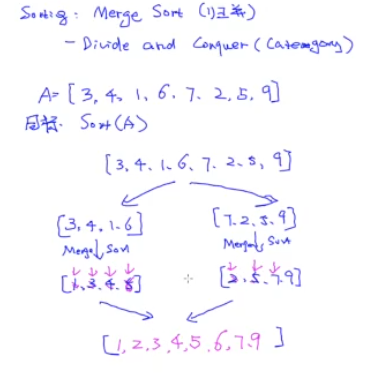 Sorting: Merge Sort (归并)
- Divide and Conquer (Category)
A=[3, 4, 1, 6, 7, 2, 5, 9]
目标: Sort(A)
[3, 4, 1, 6, 7, 2, 5, 9]
[3, 4, 1, 6] [7, 2, 5, 9]
Merge Sort Merge Sort
[1, 3, 4, 6] [2, 5, 7, 9]
[1, 2, 3, 4, 5, 6, 7, 9]